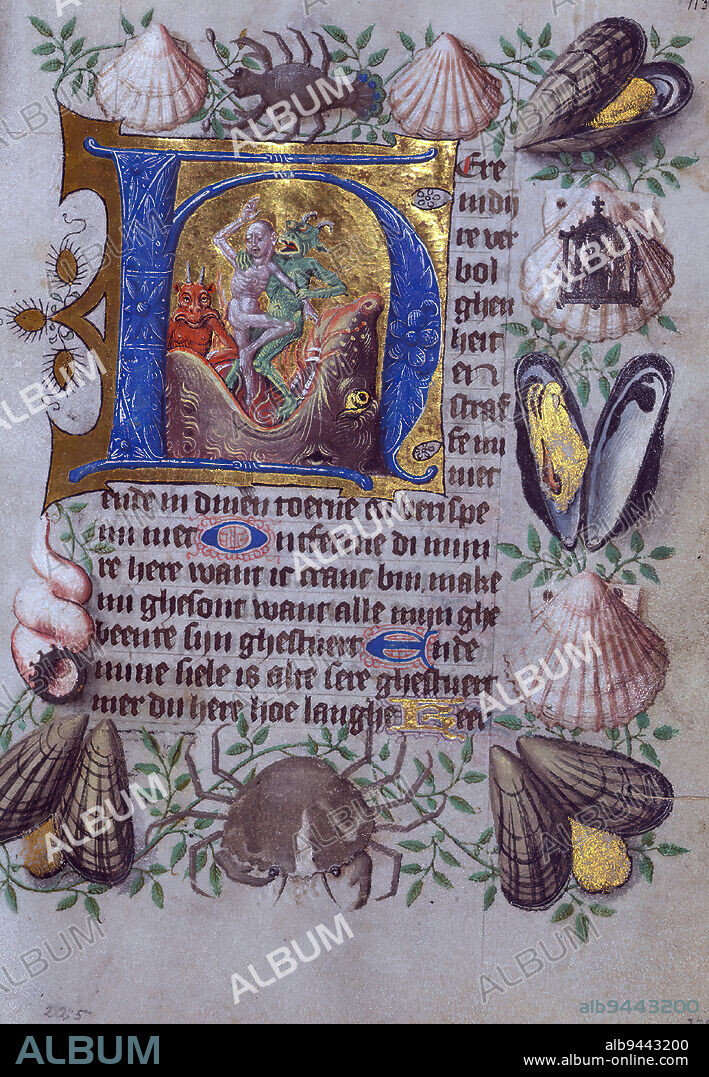 113
Here
in dij
re ver
bol
ghen
heit
en
straf
fe mi
niet
ende in dinen toerne en berispe
mi niet Ontferme di mijn
re here want ic cranc bin make
mi ghesont want alle mijn ghe
beente sijn ghestuert Ende
mine siele is alte sere ghestuert
mer du here hoe langhe Keer
225
alb9443200
ALBUM
alb9443200
www.album-online.com